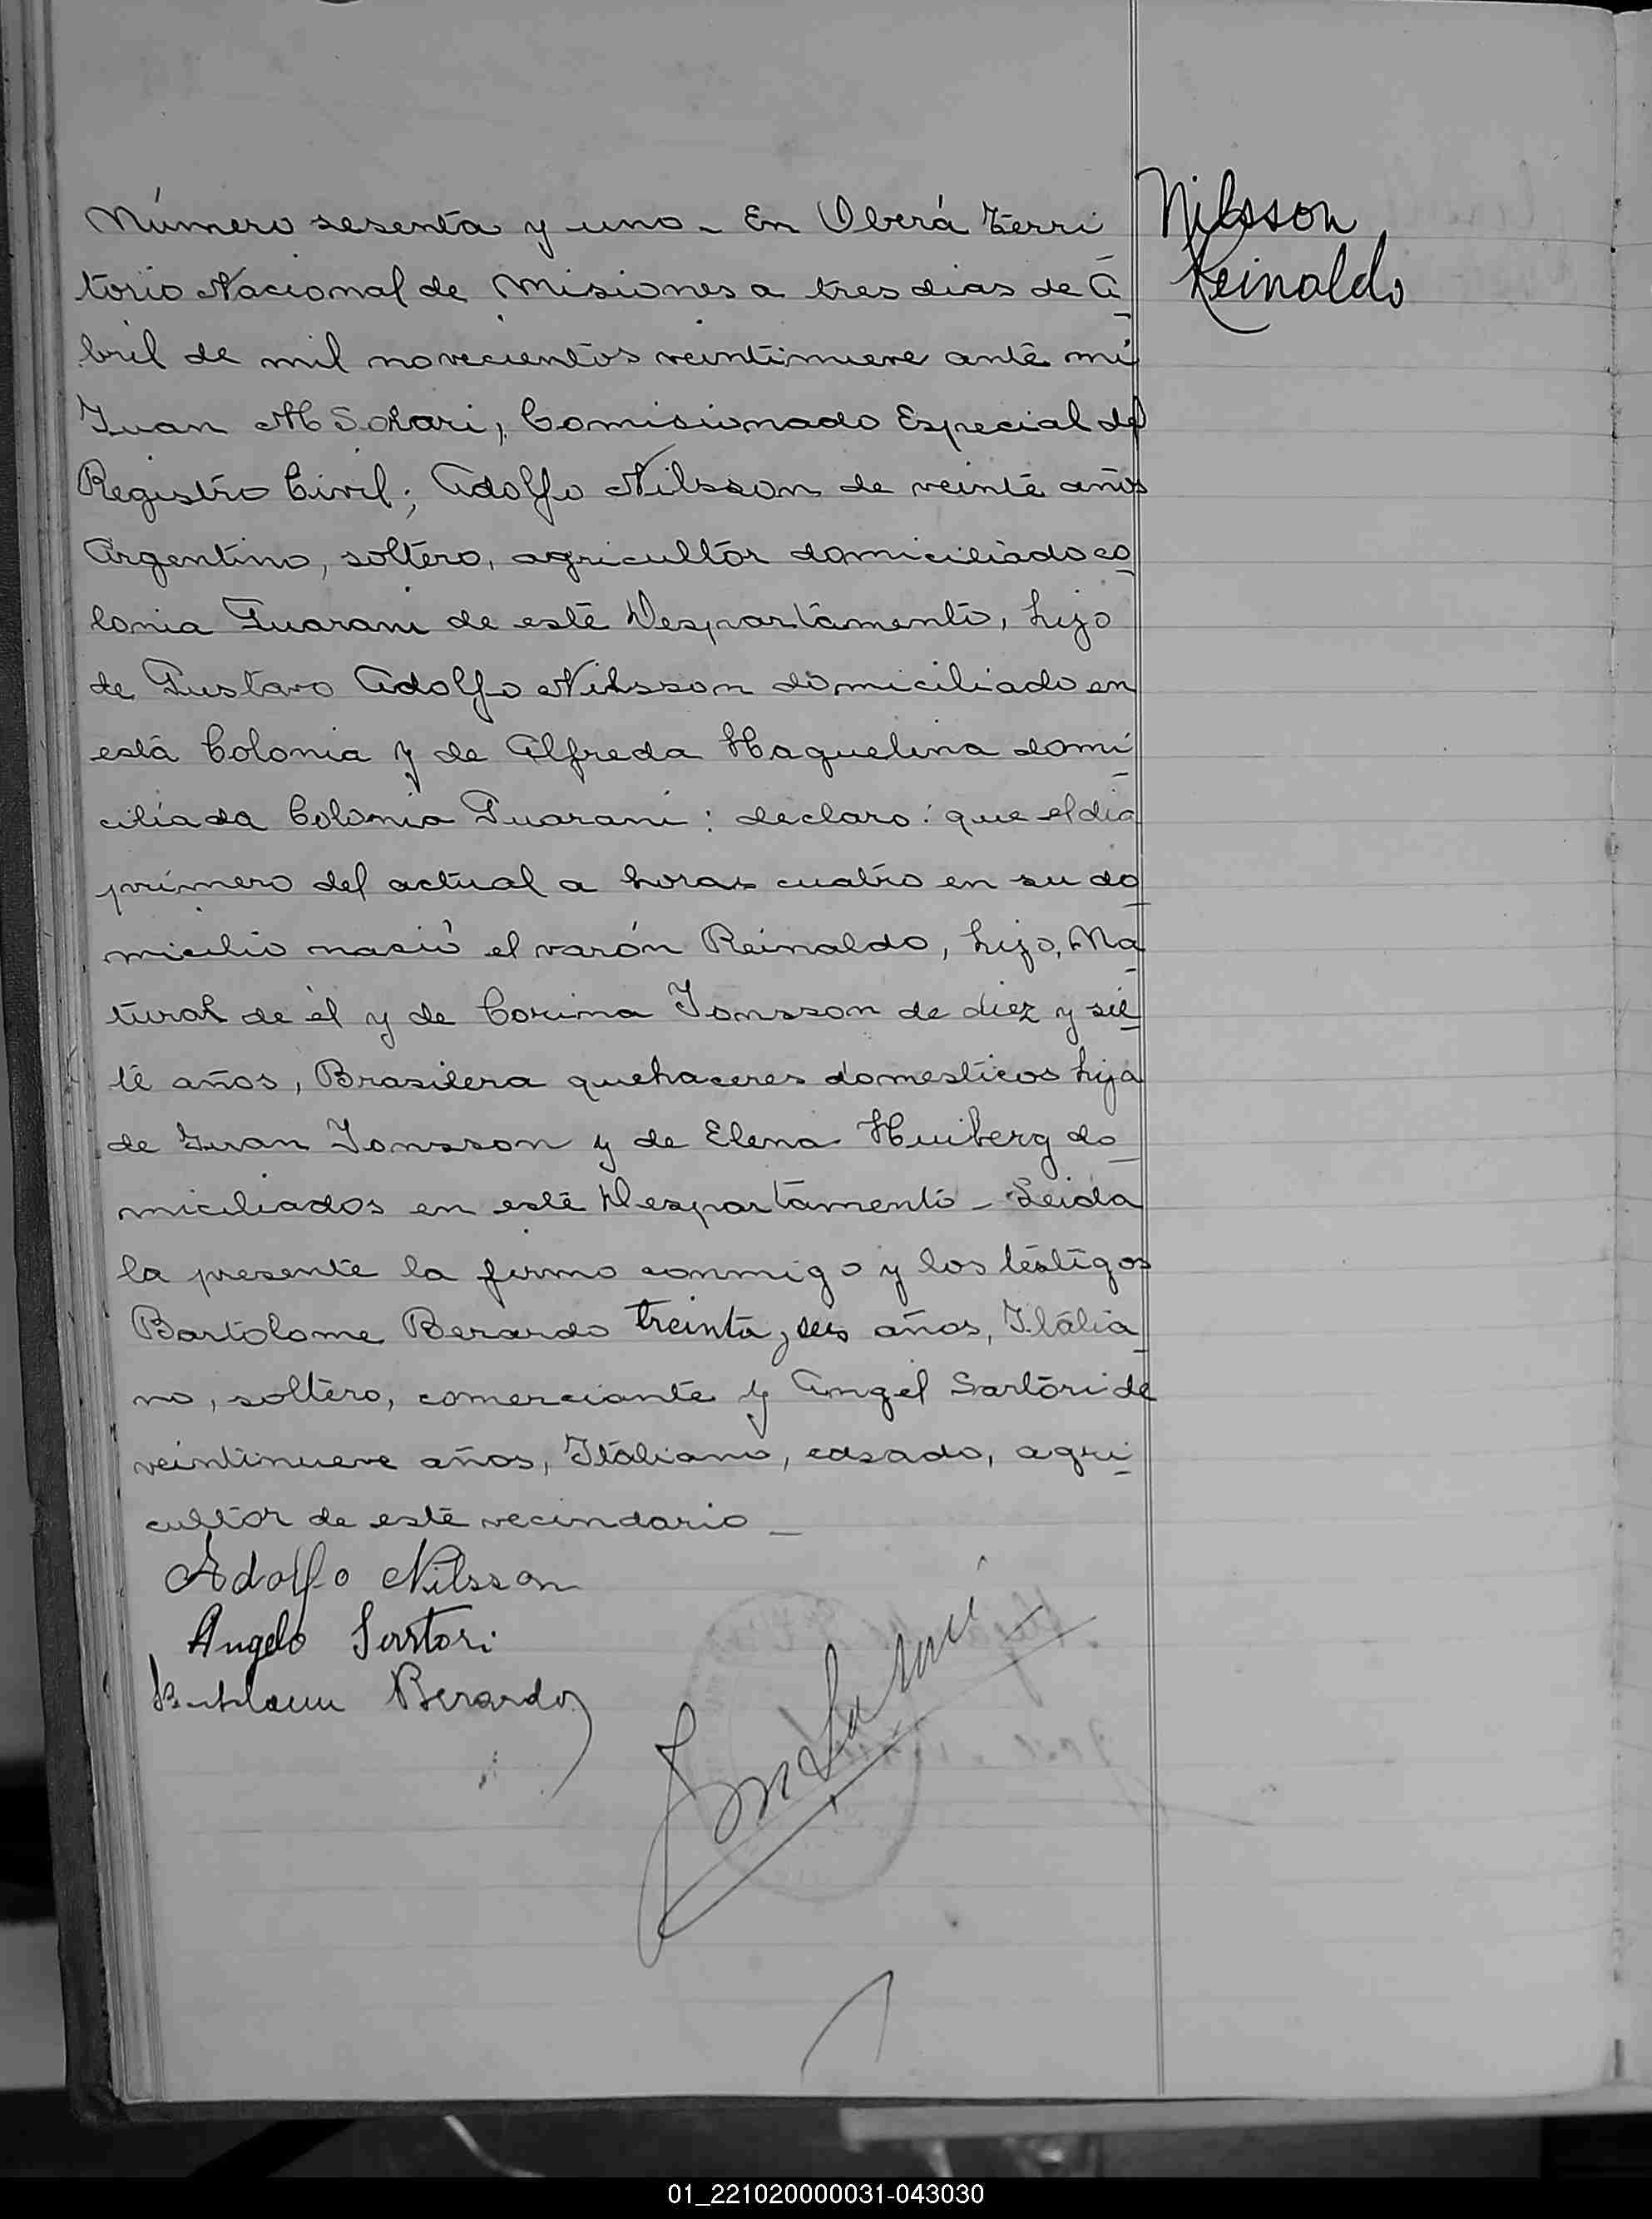 Nilsson
Reinaldo
Número sesenta y uno - En Oberá Terri
torio Nacional de Misiones a tres dias de A
bril de mil novecientos veintinueve ante mí
Juan M Solari, Comisionado Especial del
Registro Civil; Adolfo Nilsson de veinte años
Argentino, soltero, agricultor domiciliado co
lonia Guarani de este Despartamento, hijo
de Gustavo Adolfo Nilsson domiciliado en
está Colonia y de Alfreda Haquelina domi
ciliada Colonia Guarani: declaro: que el dia
primero del actual a horas cuatro en su do
micilio nació el varón Reinaldo, hijo, Na
tural de él y de Corina Jonsson de diez y sie
te años, Brasilera quehaceres domesticos hija
de Juan Jonsson y de Elena Huiberg do
miciliados en este Despartamento - Leida
la presente la firmo conmigo y los testigos
Bartolome Berardo treinta y seis años, Italia
no, soltero, comerciante y Angel Sartori de
veintinueve años, Italiano, casado, agri
cultor de este vecindario -
Adolfo Nilsson
Angelo Sartori
Berardo
01_221020000031-043030